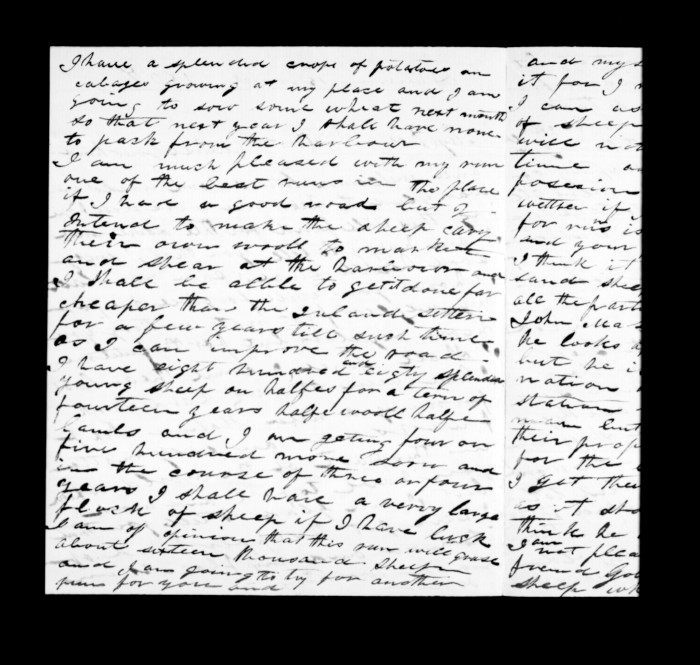 I have a splended crope of potatoes an
cabages growing at my place and I am
going to sow some wheat next month
so that next year I shall have none
to pack from the harbour
I am much pleased with my run
one of the best runs in the place
if I have a good road but I
intend to make the sheep cary
their own wooll to market
and shear at the harbour and
I shall be allble to getitdone far
cheaper than the Inland setters
for a few years till such time
as I can improve the road
I have eight hundred and Eigty splended
young sheep on halfes for a term of
fourteen years halfe wooll halfe
lambs and I am geting four or
five hundred more soon and
in the course of three or four
years I shall have a very large
flock of sheep if I have luck
I am of opinion that this run will grase
about sixteen thousand sheep
and I am going to try for another
run for you and
and mys
it for I
I can as
of sheep
will not
time
posesion
wether if
for runs is
and your
I think it
sand shee
all the part
John Mas
he looks
but he i
nation
station
man but
their prop
for the
I get thei
as it sho
think he
I am not plea
frend Go
sheep wh